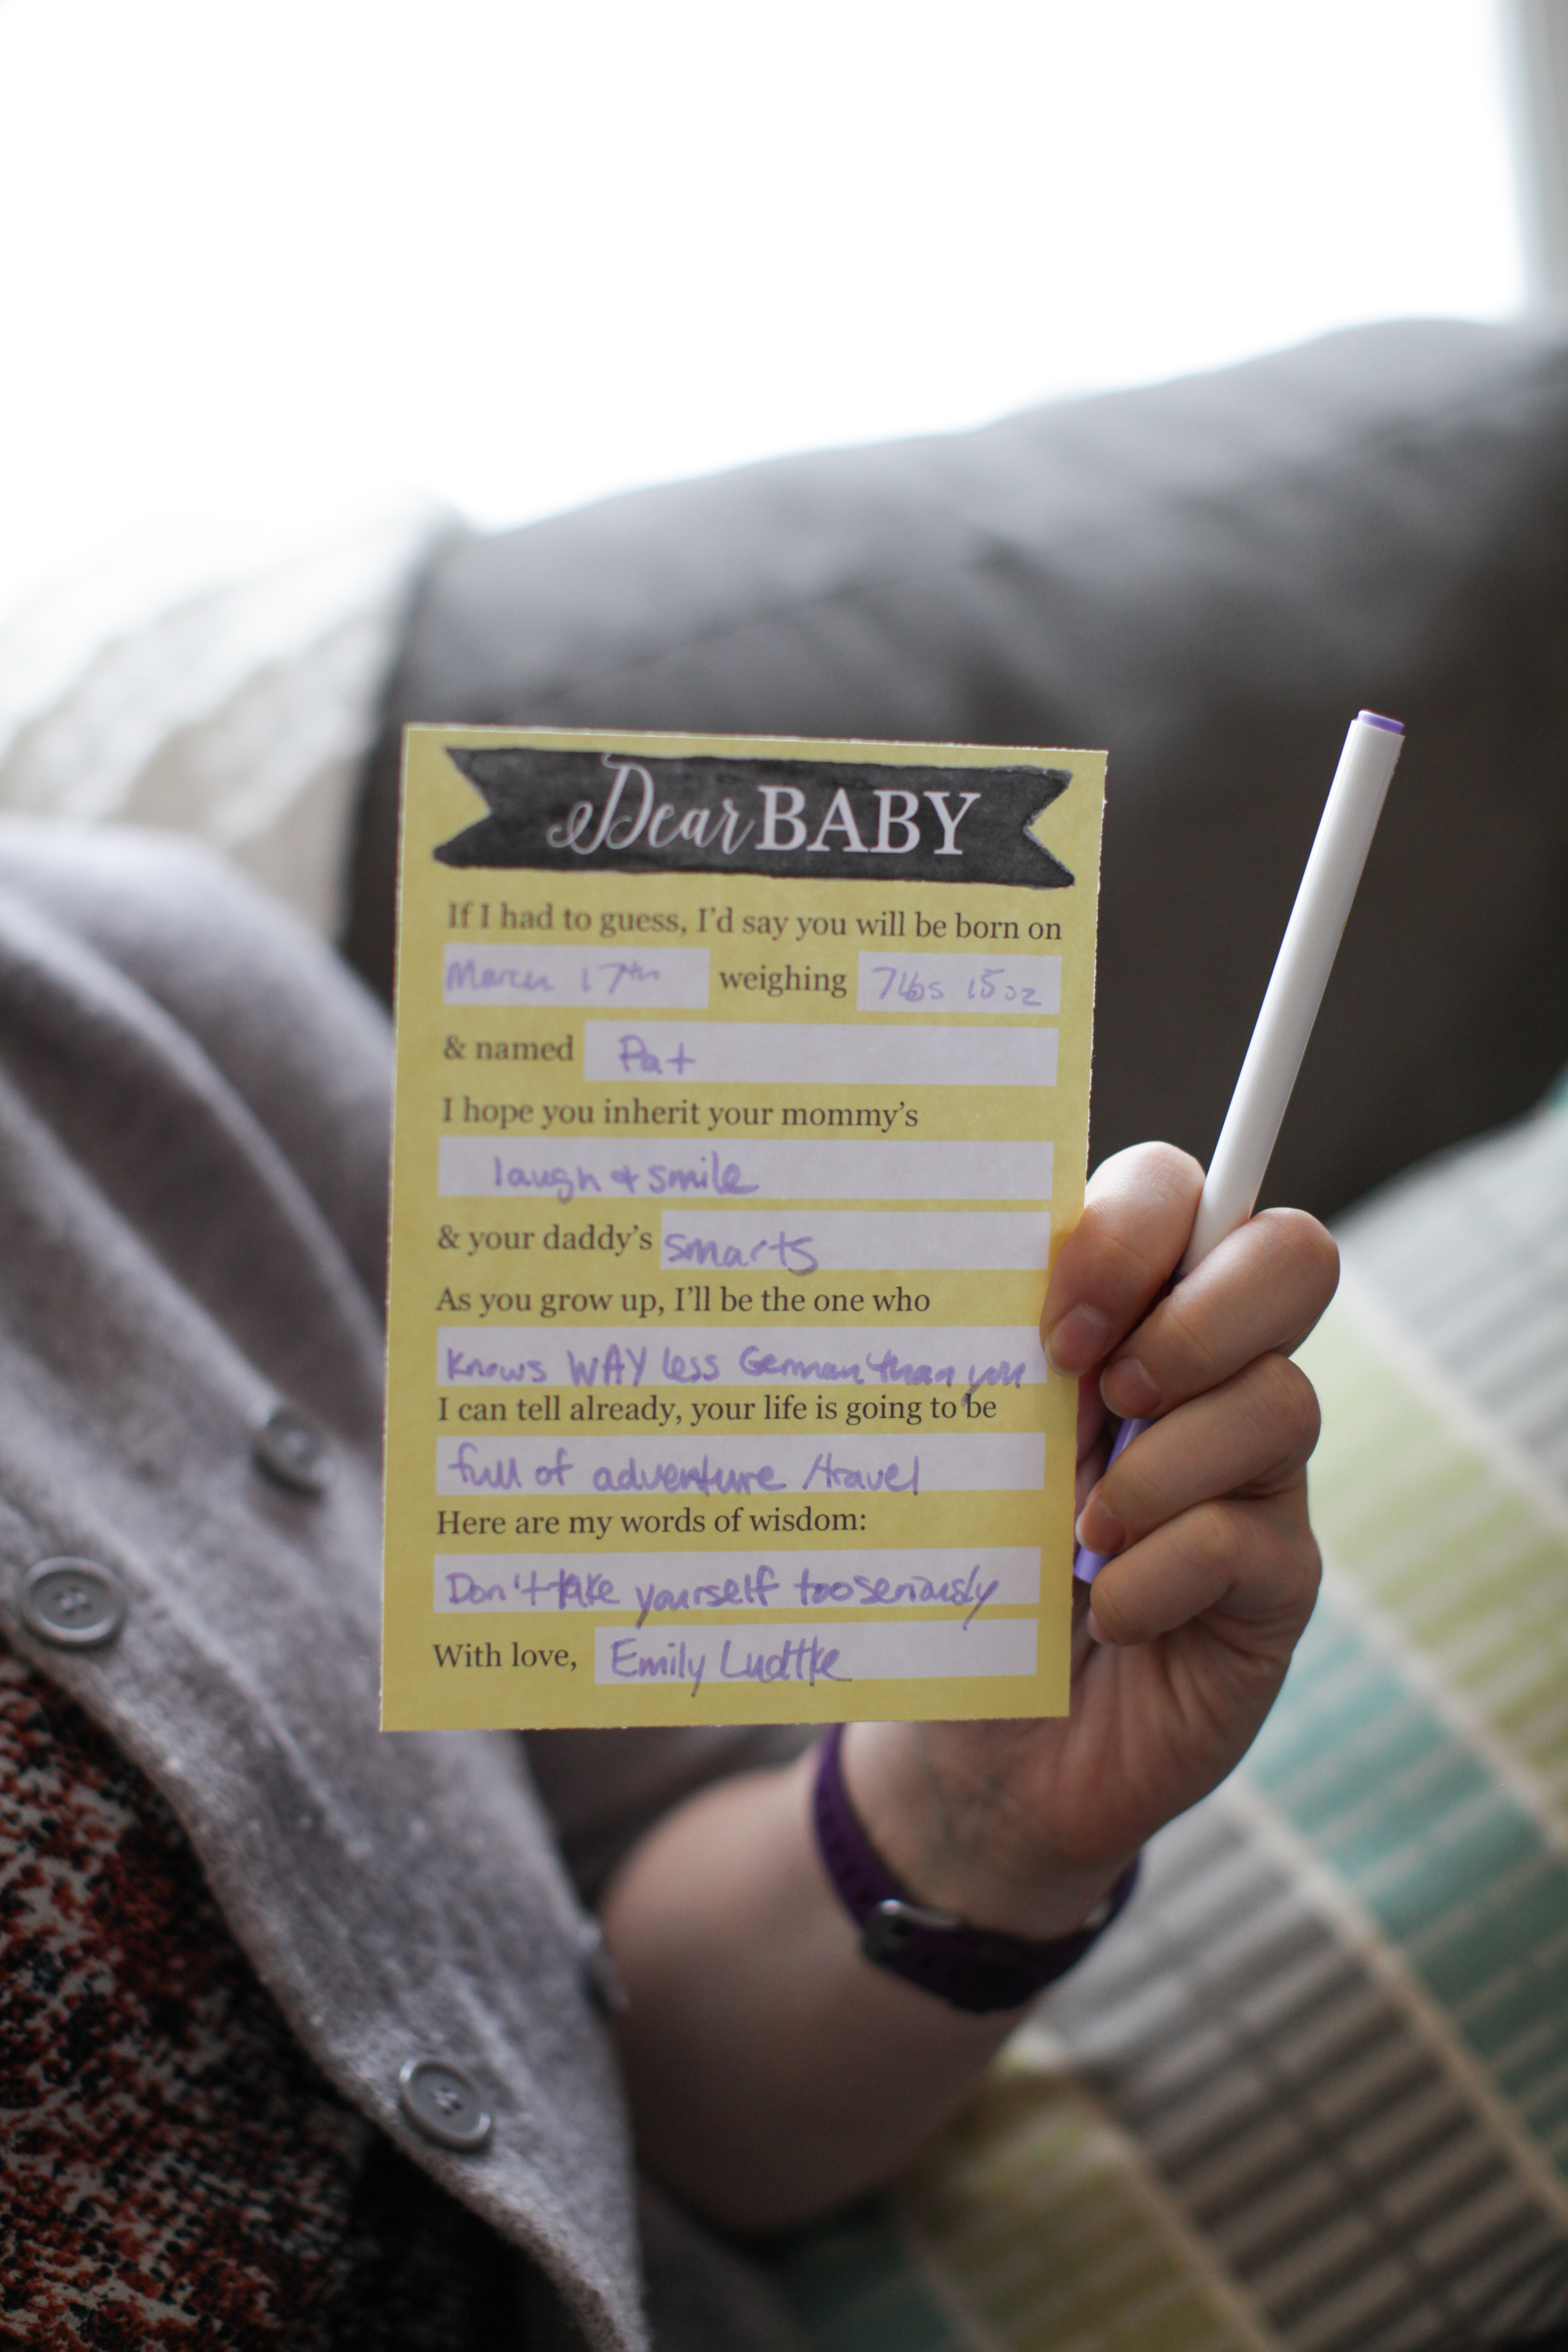 Dear BABY
If I had to guess, I'd say you will be born on
March 17th weighing 7lbs 15oz
& named Pat
I hope you inherit your mommy's
laugh + smile
& your daddy's smarts
As you grow up, I'll be the one who
knows WAY less German than you
I can tell already, your life is going to be
full of adventure /travel
Here are my words of wisdom:
Don't take yourself too seriously
With love, Emily Ludtke